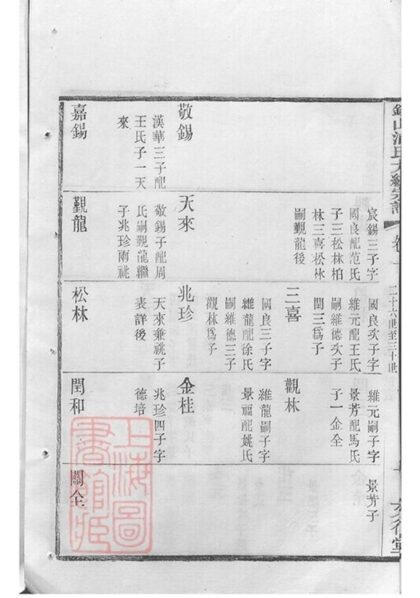 二十六世至三十世
宸錫三子字
國良配范氏
子三松林柏
林三喜松林
嗣覲龍後
國良次子字
維元配王氏
嗣維德次子
閏三爲子
維元嗣子字
景芳配馬氏
子一金全
景芳子
三喜
國良三子字
維龍配徐氏
嗣維德三子
觀林爲子
觀林
維龍嗣子字
景福配姚氏
敬錫
漢華三子配
王氏子一天
來
天來
敬錫子配周
氏嗣覲龍繼
子兆珍兩祧
兆珍
天來兼祧子
表詳後
金桂
兆珍四子字
德培
嘉錫
覲龍
松林
閏和
關全
上海圖
書館藏